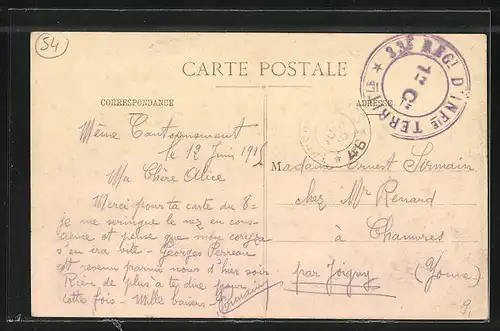 54
33E REGt D'INFIE TERRIALE
1re Cie
CARTE POSTALE
CORRESPONDANCE
ADRESSE
46
Même Cantonnement
le 12 Juin 191
Ma Chère Alice
Merci pour ta carte du 8 =
je me seringue le nez en cons-
cience et pense que mon coryza
s'en ira vite - Georges Perreau
est revenu parmi nous d'hier soir
Rien de plus a te dire pour
cette fois - Mille baisers -
Madame Ernest Sirmain
chez Mr Renard
à Chamvres
par Joigny (Yonne)